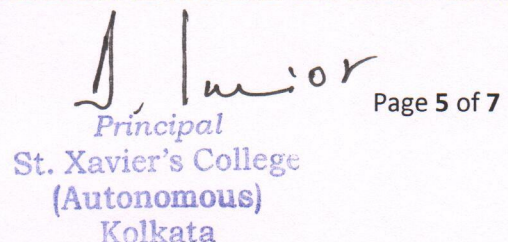 Page 5 of 7
Principal
St. Xavier's College
(Autonomous)
Kolkata